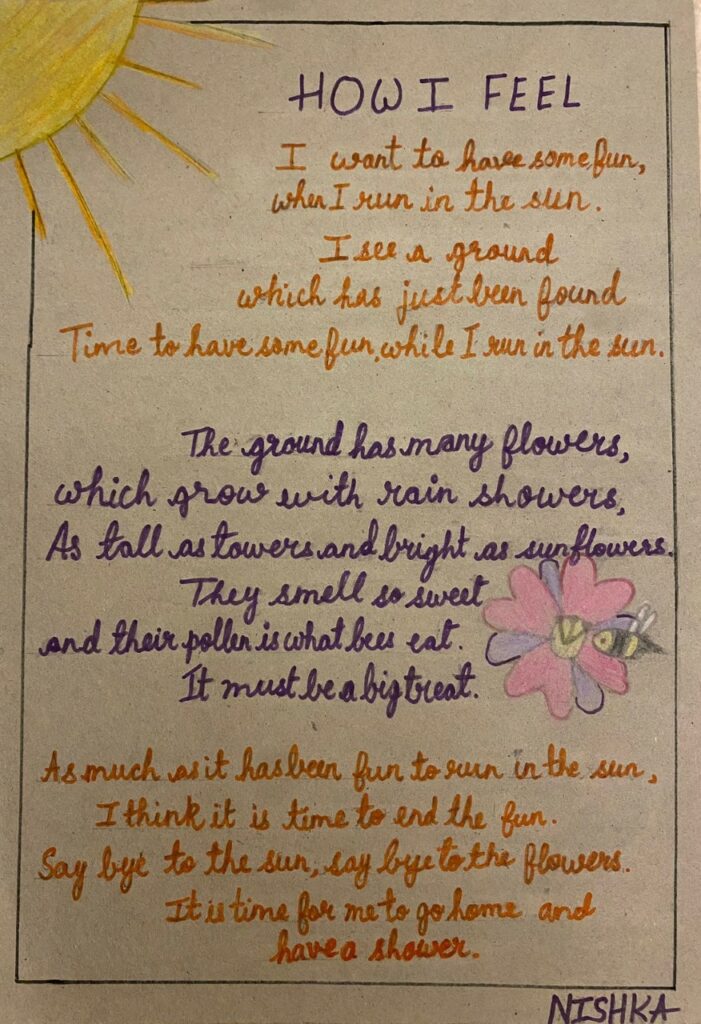 HOW I FEEL
I want to have some fun,
when I run in the sun.
I see a ground
which has just been found
Time to have some fun, while I run in the sun.
The ground has many flowers,
which grow with rain showers,
As tall as towers and bright as sunflowers.
They smell so sweet
and their pollen is what bees eat.
It must be a big treat.
As much as it has been fun to run in the sun,
I think it is time to end the fun.
Say bye to the sun, say bye to the flowers.
It is time for me to go home and
have a shower.
NISHKA